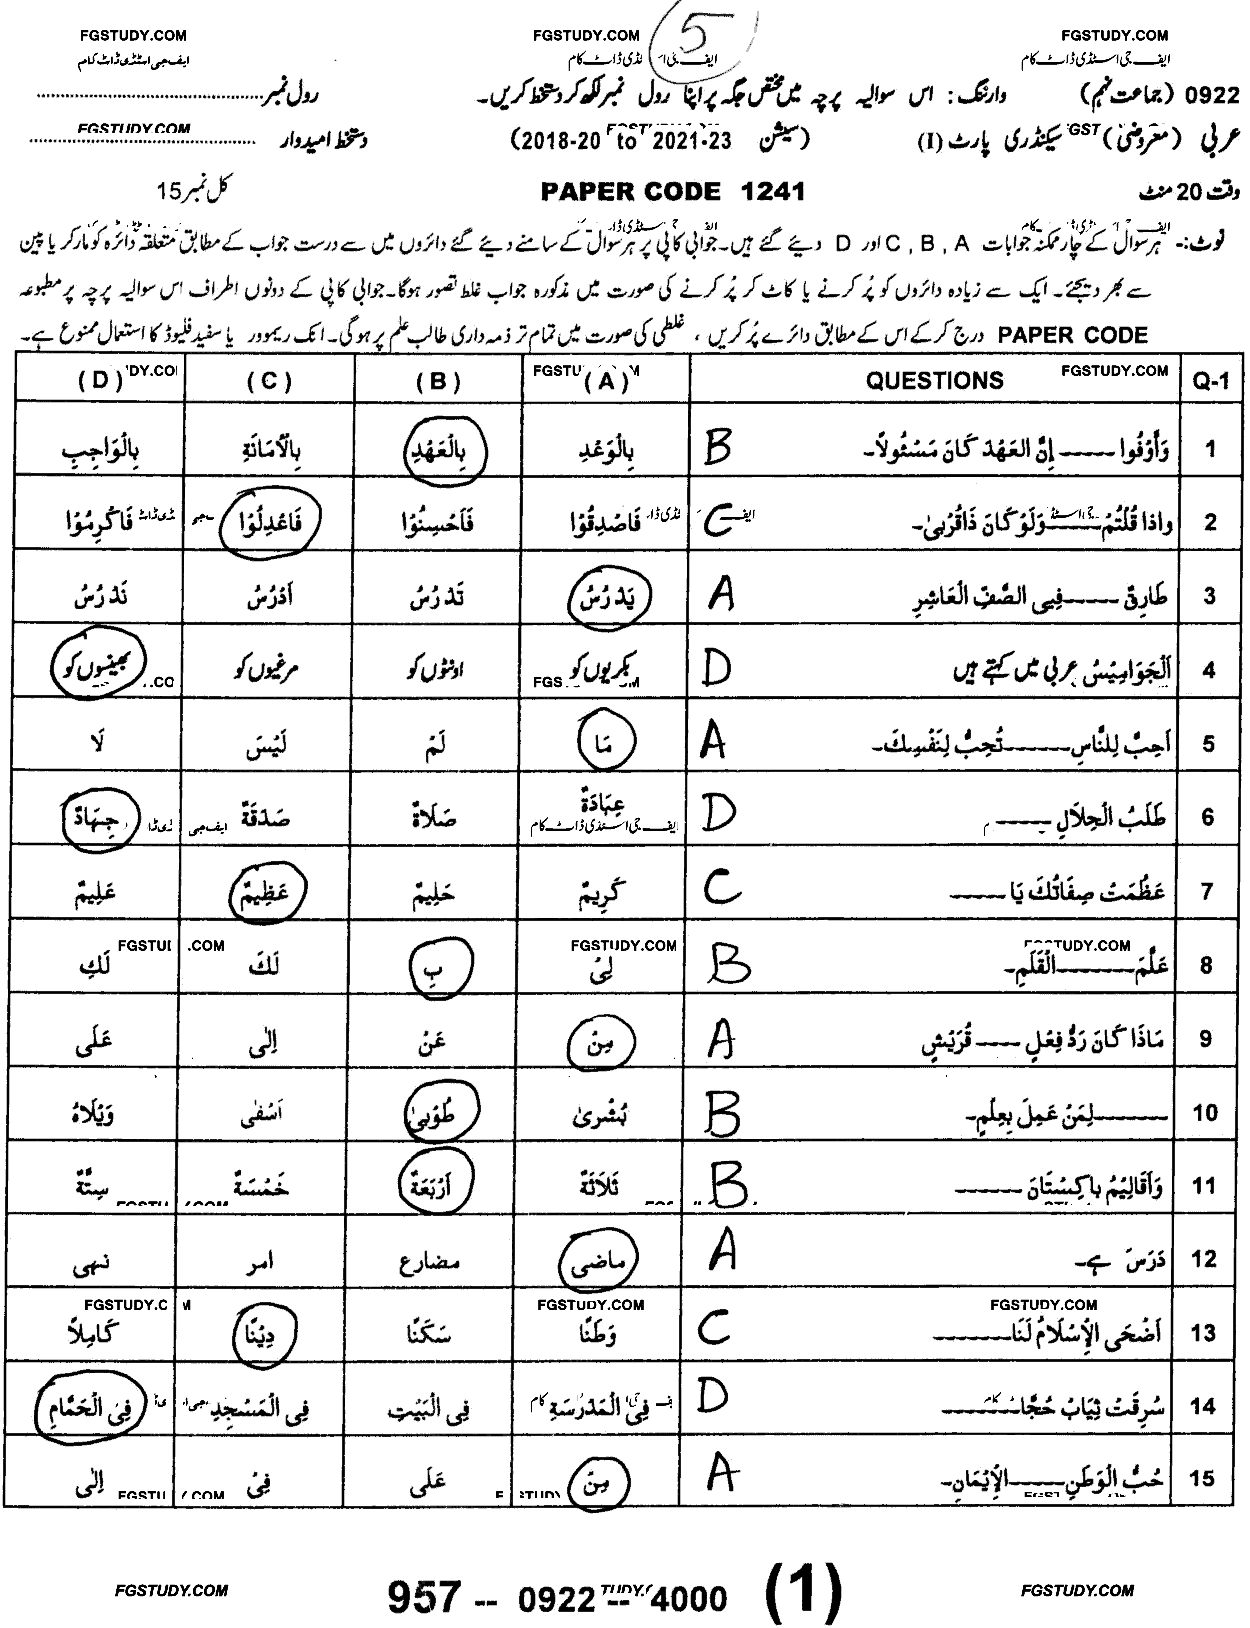 FGSTUDY.COM FGSTUDY.COM FGSTUDY.COM
5
ایف جی اسٹڈی ڈاٹ کام ایف جی اسٹڈی ڈاٹ کام
0922 (جماعت نہم) وارننگ: اس سوالیہ پرچہ میں مختص جگہ پر اپنا رول نمبر لکھ کر دستخط کریں۔ رول نمبر
عربی (معروضی) سیکنڈری پارٹ (I) (سیشن 2018-20 to 2021-23) دستخط امیدوار
FGSTUDY.COM
وقت 20 منٹ PAPER CODE 1241 کل نمبر 15
نوٹ:- ہر سوال کے چار ممکنہ جوابات A , B , C اور D دیئے گئے ہیں۔ جوابی کاپی پر ہر سوال کے سامنے دیئے گئے دائروں میں سے درست جواب کے مطابق متعلقہ دائرہ کو مارکر یا پین
سے بھر دیجئے۔ ایک سے زیادہ دائروں کو پُر کرنے یا کاٹ کر پُر کرنے کی صورت میں مذکورہ جواب غلط تصور ہوگا۔ جوابی کاپی کے دونوں اطراف اس سوالیہ پرچہ پر مطبوعہ
PAPER CODE درج کر کے اس کے مطابق دائرے پُر کریں، غلطی کی صورت میں تمام تر ذمہ داری طالب علم پر ہوگی۔ انک ریموور یا سفید فلیوڈ کا استعمال ممنوع ہے۔
Q-1 QUESTIONS FGSTUDY.COM (A) (B) (C) (D)
1 وَأَوْفُوا ـــــ إِنَّ العَهْدَ كَانَ مَسْئُولاً۔ B بِالْوَعْدِ بِالْعَهْدِ بِالْاَمَانَةِ بِالْوَاجِبِ
2 واذا قُلْتُمْ ـــــ وَلَوْ كَانَ ذَاقُرْبىٰ۔ C فَاصْدِقُوْا فَاَحْسِنُوْا فَاعْدِلُوْا فَاكْرِمُوْا
3 طَارِقٌ ـــــ فِيى الصَّفِّ الْعَاشِرِ A يَدْرُسُ تَدْرُسُ اَدْرُسُ نَدْرُسُ
4 اَلْجَوَامِيْسُ عربی میں کہتے ہیں D بکریوں کو اونٹوں کو مرغیوں کو بھینسوں کو
5 اَحِبَّ لِلنَّاسِ ـــــ تُحِبُّ لِنَفْسِكَ۔ A مَا لَمْ لَيْسَ لَا
6 طَلَبُ الْحلَالِ ـــــ D عِبَادَةٌ صَلَاةٌ صَدَقَةٌ جِهَادٌ
7 عَظُمَتْ صِفَاتُكَ يَا ـــــ C كَرِيمٌ حَلِيمٌ عَظِيمٌ عَلِيمٌ
8 عَلَّمَ ـــــ الْقَلَمِ۔ B لِىْ بِ لَكَ لَكِ
9 مَاذَا كَانَ رَدُّ فِعْلٍ ـــــ قُرَيْشٍ A مِنْ عَنْ اِلٰى عَلَى
10 ـــــ لِمَنْ عَمِلَ بِعِلْمٍ۔ B بُشْرىٰ طُوْبىٰ اَسْفٰى وَيْلَاهُ
11 وَاَقَالِيْمُ باكِسْتَانَ ـــــ B ثَلَاثَةٌ اَرْبَعَةٌ خَمْسَةٌ سِتَّةٌ
12 دَرَسَ ہے۔ A ماضی مضارع امر نہی
13 اَضْحَى الاِسْلَامُ لَنَا ـــــ C وَطَنًا سَكَنًا دِيْنًا كَامِلاً
14 سُرِقَتْ ثِيَابُ حُجَّا ـــــ D فِى الْمَدْرَسَةِ فِى الْبَيْتِ فِى الْمَسْجِدِ فِى الْحَمَّامِ
15 حُبُّ الْوَطَنِ ـــــ الْاِيْمَانِ۔ A مِنْ عَلَى فِىْ اِلٰى
FGSTUDY.COM 957 -- 0922 -- 4000 (1) FGSTUDY.COM